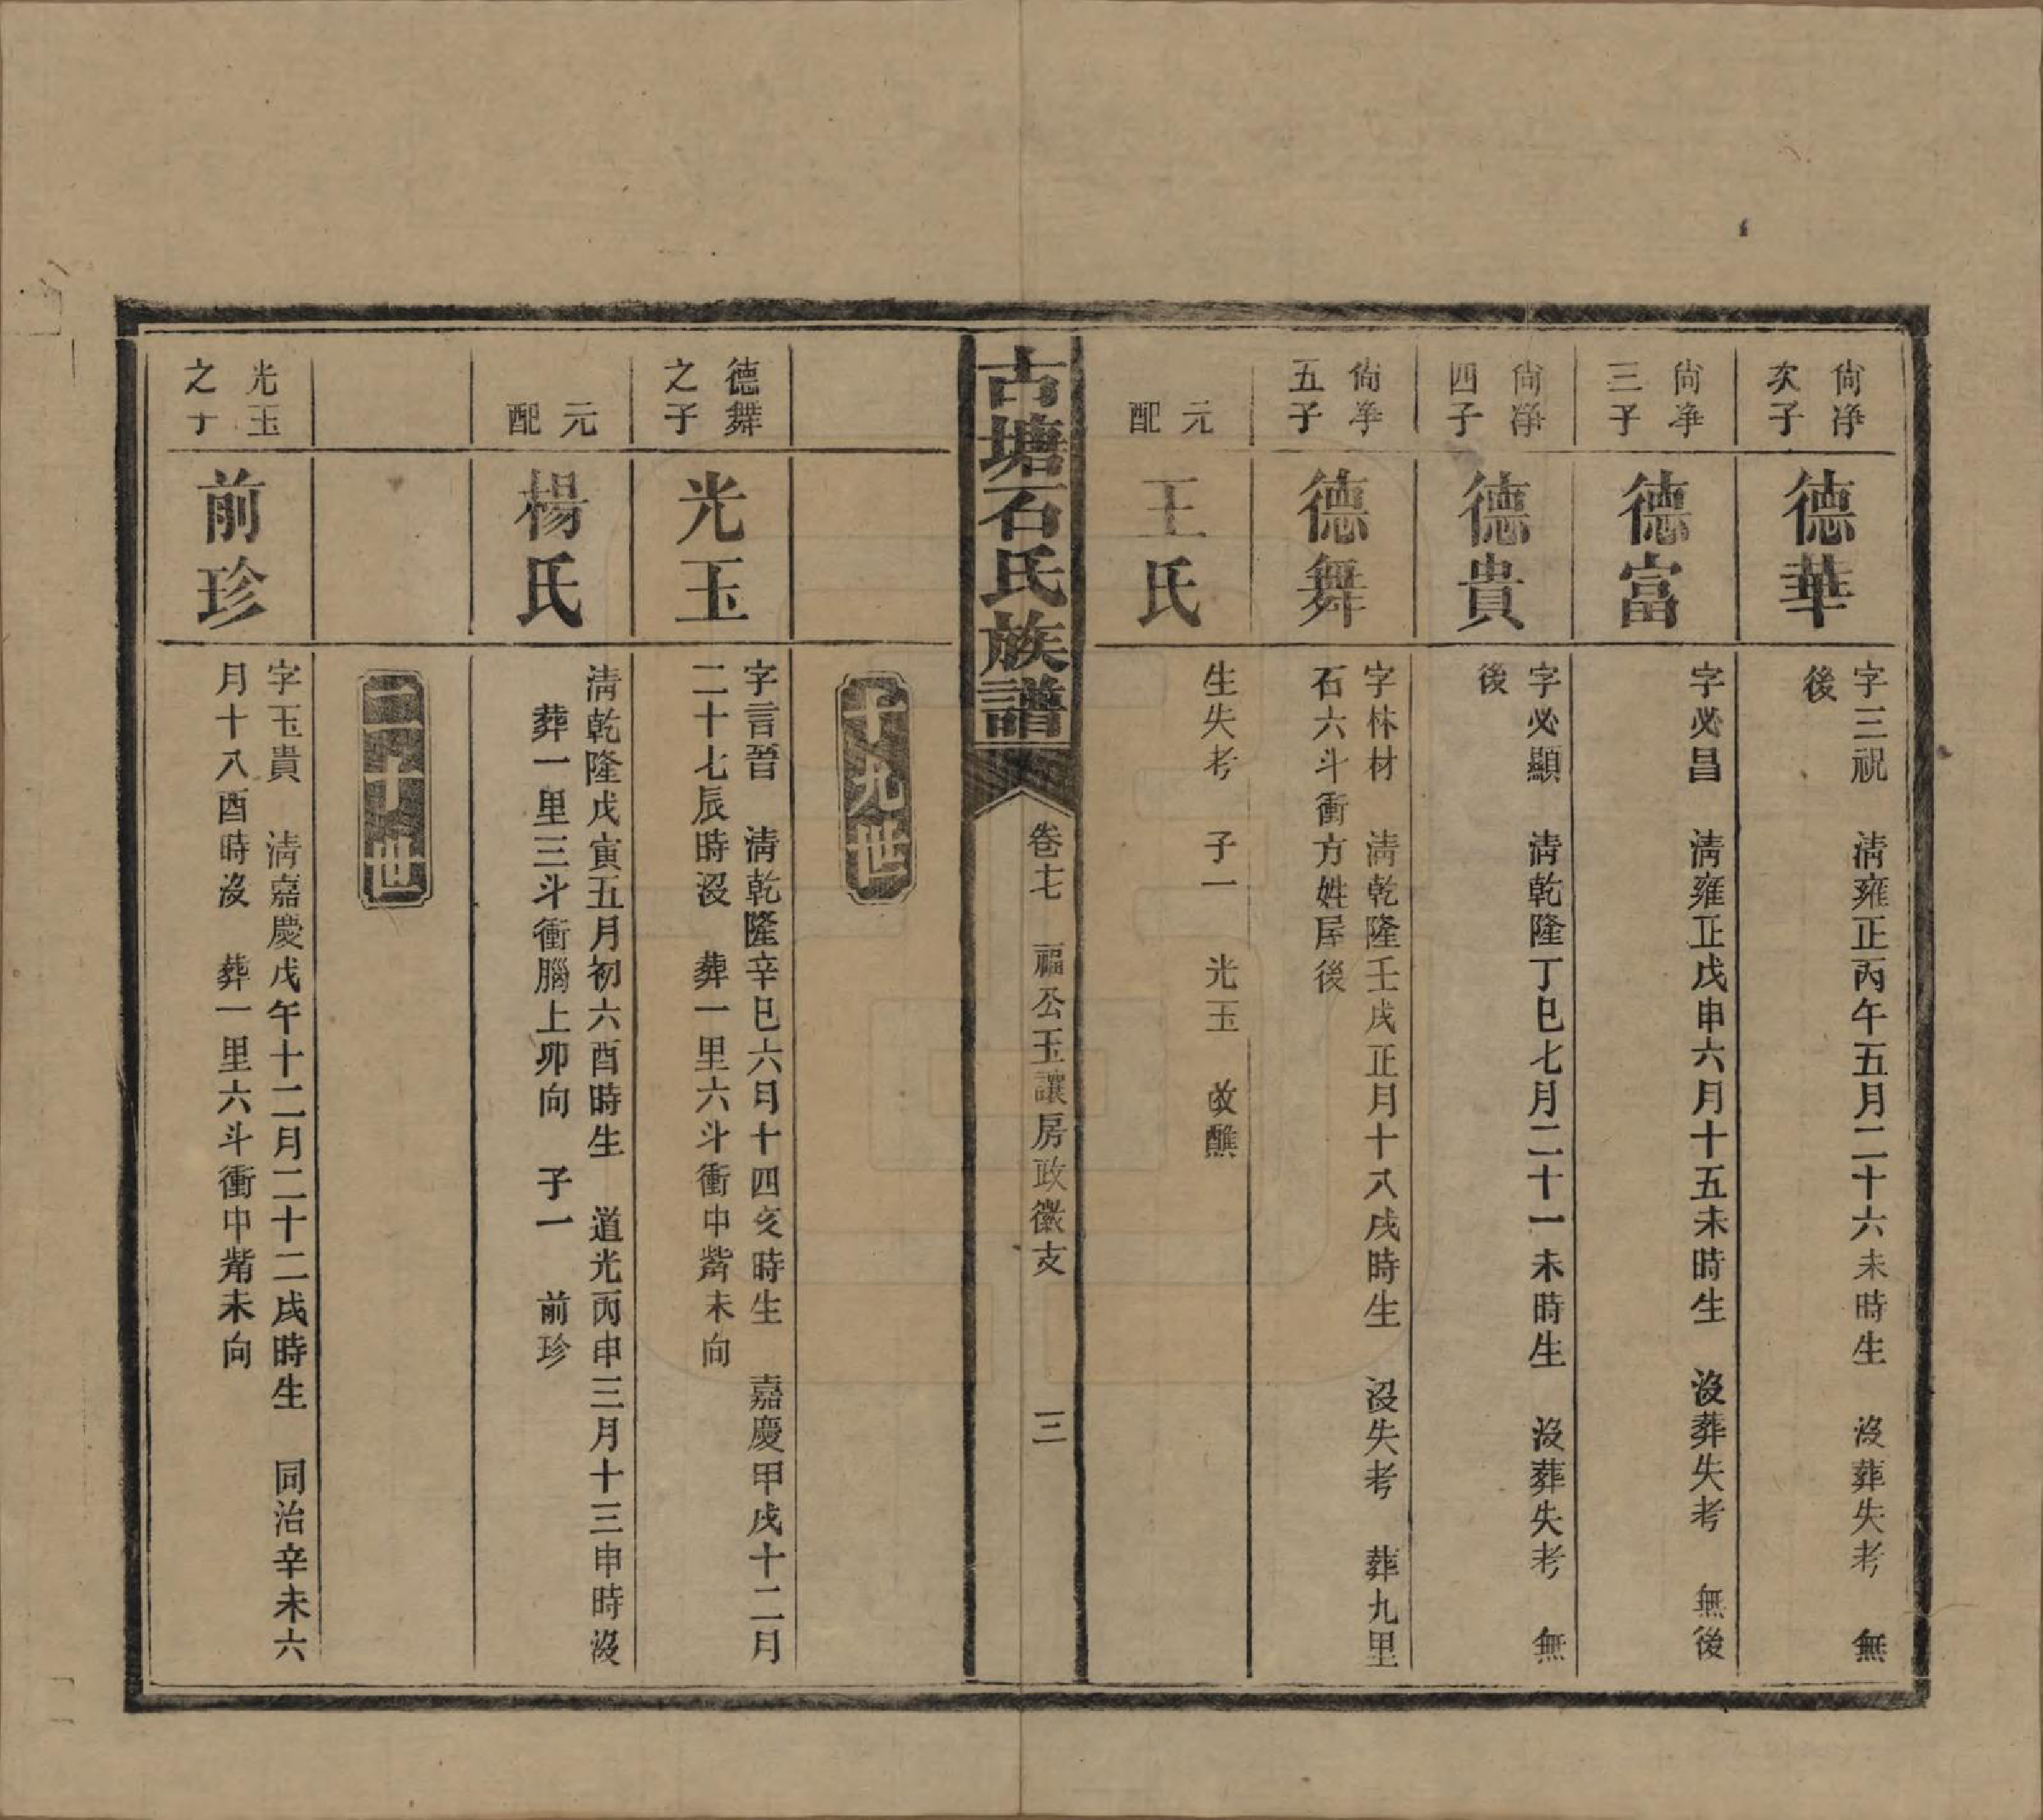 尙淨
次子
德華
字三祝　淸雍正丙午五月二十六未時生　沒葬失考　無
後
尙淨
三子
德富
字必昌　淸雍正戊申六月十五未時生　沒葬失考　無後
尙淨
四子
德貴
字必顯　淸乾隆丁巳七月二十一未時生　沒葬失考　無
後
尙淨
五子
德舞
字林材　淸乾隆壬戌正月十八戌時生　沒失考　葬九里
石六斗衝方姓屋後
元
配
王氏
生失考　子一　光玉　改醮
古塘石氏族譜
卷七　福公玉讓房政徽支　三
十九世
德舞
之子
光玉
字言晉　淸乾隆辛巳六月十四亥時生　嘉慶甲戌十二月
二十七辰時沒　葬一里六斗衝中觜未向
元
配
楊氏
淸乾隆戊寅五月初六酉時生　道光丙申三月十三申時沒
葬一里三斗衝腦上卯向　子一　前珍
二十世
光玉
之子
前珍
字玉貴　淸嘉慶戊午十二月二十二戌時生　同治辛未六
月十八酉時沒　葬一里六斗衝中觜未向